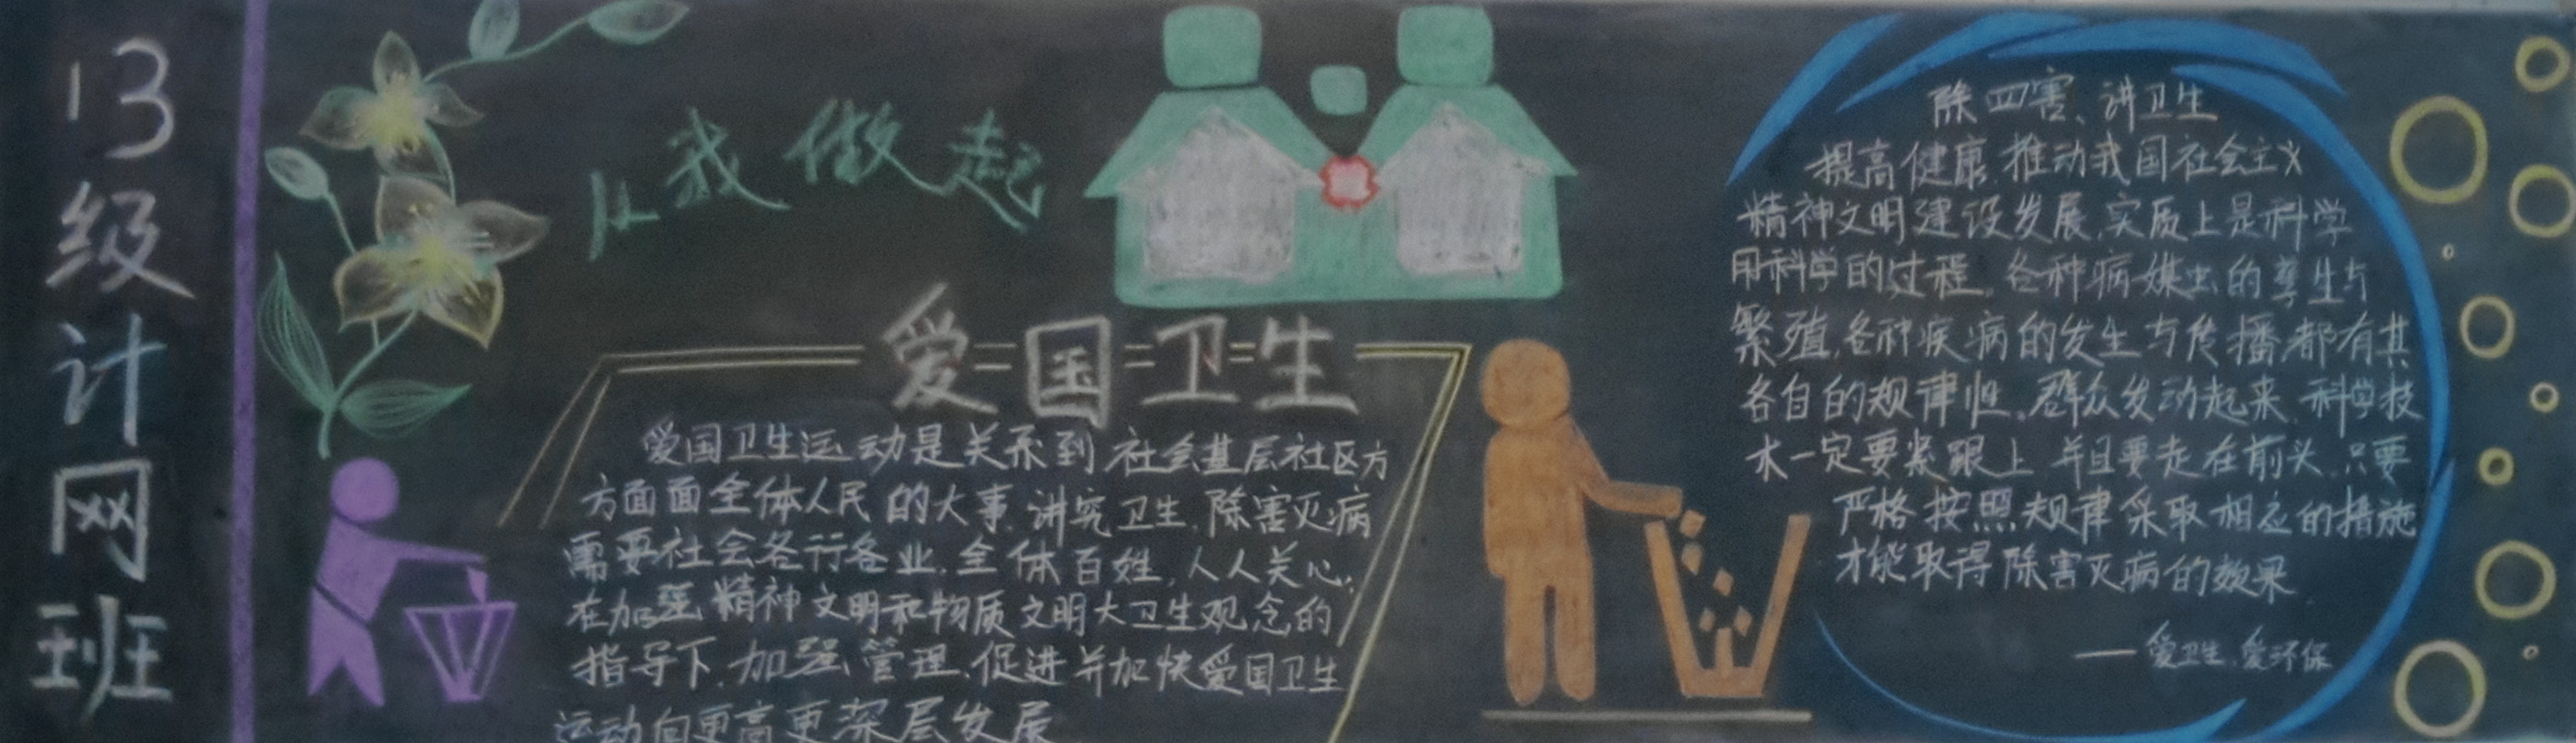 13级计网班
从我做起
爱国卫生
爱国卫生运动是关系到社会基层社区方
方面面全体人民的大事.讲究卫生.除害灭病
需要社会各行各业.全体百姓,人人关心;
在加强精神文明和物质文明大卫生观念的
指导下.加强管理.促进并加快爱国卫生
运动向更高更深层发展
除四害、讲卫生
提高健康.推动我国社会主义
精神文明建设发展.实质上是科学
用科学的过程。各种病媒虫的孳生与
繁殖.各种疾病的发生与传播都有其
各自的规律性。群众发动起来.科学技
术一定要紧跟上.并且要走在前头.只要
严格按照规律采取相应的措施
才能取得除害灭病的效果.
——爱卫生、爱环保